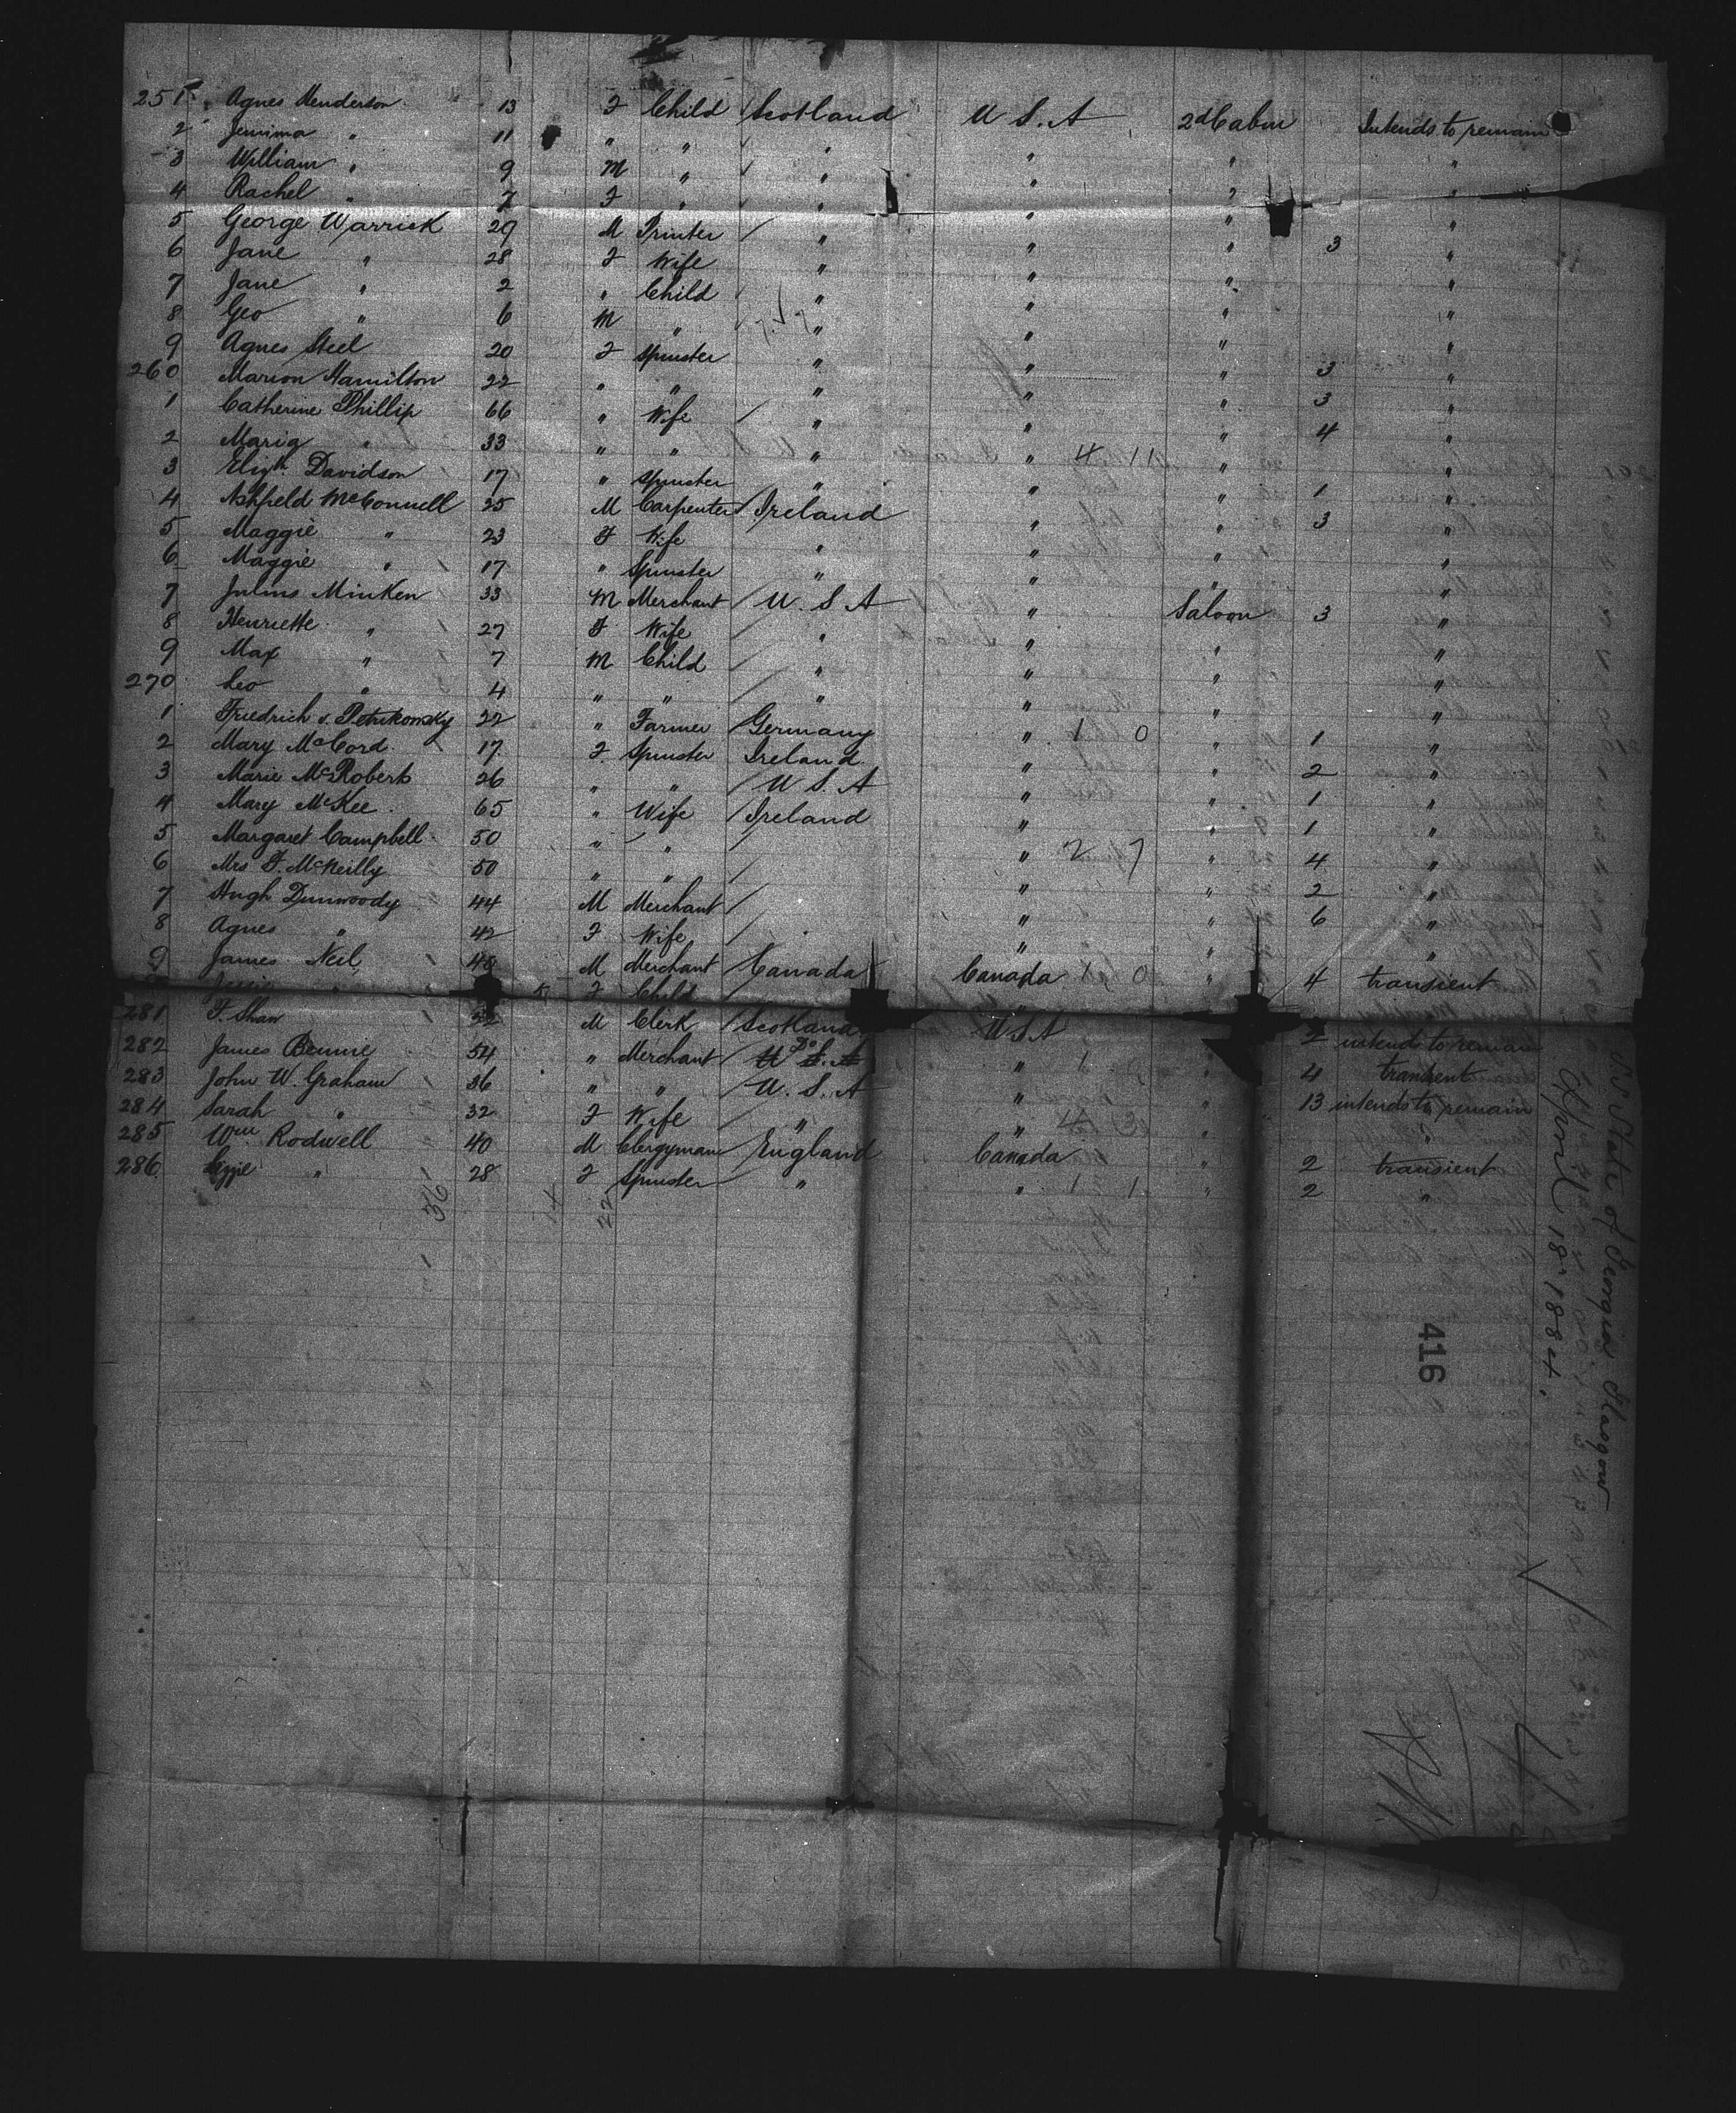 251 Agnes Henderson 13 F Child Scotland U.S.A 2d Cabin Intends to remain
2 Jemima " 11 " " " " " "
3 William " 9 M " " " " "
4 Rachel " 7 F " " " " "
5 George Warrick 29 M Printer " " " 3 "
6 Jane " 28 F Wife " " " "
7 Jane " 2 " Child " " " "
8 Geo " 6 M " " " " "
9 Agnes Steel 20 F Spinster " " " 3 "
260 Marion Hamilton 22 " " " " " 3 "
1 Catherine Phillip 66 " Wife " " " 4 "
2 Maria " 33 " " " " 4 11 " "
3 Elizth Davidson 17 " Spinster " " " 1 "
4 Ashfield McConnell 25 M Carpenter Ireland " " 3 "
5 Maggie " 23 F Wife " " " "
6 Maggie " 17 " Spinster " " " "
7 Julius Minken 33 M Merchant U.S.A " Saloon 3 "
8 Henriette " 27 F Wife " " " "
9 Max " 7 M Child " " " "
270 Leo " 4 " " " " " "
1 Friedrich v. Petrikowsky 22 " Farmer Germany " 1 0 " 1 "
2 Mary McCord 17 F Spinster Ireland " " 2 "
3 Marie McRoberts 26 " " U.S.A " " 1 "
4 Mary McKee 65 " Wife Ireland " " 1 "
5 Margaret Campbell 50 " " " 2 7 " 4 "
6 Mrs F. McNeilly 50 " " " " 2 "
7 Hugh Dunwoody 44 M Merchant " " 6 "
8 Agnes " 42 F Wife " " "
9 James Neil M Merchant Canada Canada 0 " 4 transient
Jessie " F Child "
281 F. Shaw 22 M Clerk Scotland U.S.A 2 intends to remain
282 James Bennie 54 " Merchant Do U.S.A " 1 " 4 transient
283 John W. Graham 36 " " U.S.A " " 13 intends to remain
284 Sarah " 32 F Wife " " " "
285 Wm Rodwell 40 M Clergyman England Canada " 2 transient
286 Lizzie " 28 F Spinster " " 1 1 " 2 "
36 14 22
S.S. State of Georgia Glasgow
April 18th 1884.
416